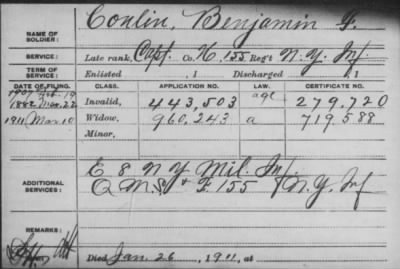 NAME OF SOLDIER: Conlin, Benjamin F.
SERVICE: Late rank, Capt. Co. K, 155 Reg't N.Y. Inf
TERM OF SERVICE: Enlisted , 1 Discharged , 1
DATE OF FILING. CLASS. APPLICATION NO. LAW. CERTIFICATE NO.
1907 Feb. 19
1882 Mar. 22 Invalid, 443,503 age 279,720
1911 Mar. 10 Widow, 960,243 a 719588
Minor,
ADDITIONAL SERVICES: E 8 N Y Mil. Inf
Q M S. & F. 155 N.Y. Inf
REMARKS:
Died Jan. 26, 1911, at